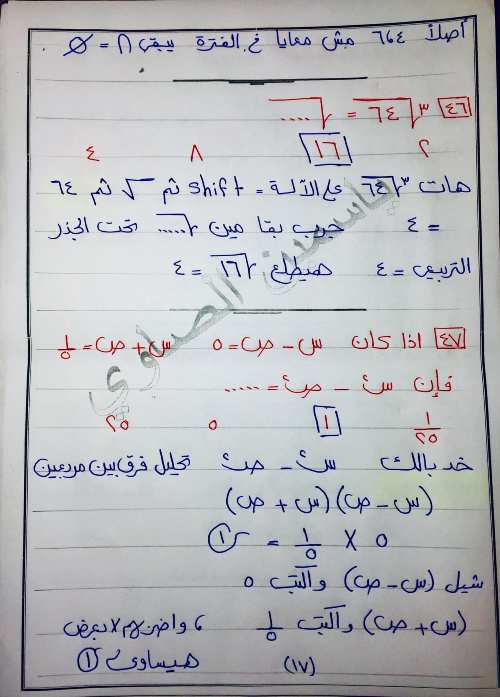 أصلاً ٤،٦٦ مش معايا في الفترة يبقى ∩ = ∅
٤٦ ∛٦٤ = √.....
٢ ١٦ ٨ ٤
هات ∛٦٤ على الآلة = Shift ثم √ ثم ٦٤
= ٤ جرب بقا مين √..... تحت الجذر
التربيعي = ٤ هيطلع √١٦ = ٤
٤٧ اذا كان س - ص = ٥ س + ص = ١/٥
فإن س² - ص² = .....
١/٢٥ ١ ٥ ٢٥
خد بالك س² - ص² تحليل فرق بين مربعين
(س - ص) (س + ص)
٥ × ١/٥ = ١
شيل (س - ص) واكتب ٥
(س + ص) واكتب ١/٥ ، واضربهم × بعض
هيساوي ١
(١٧)
ياسمين الصاوي